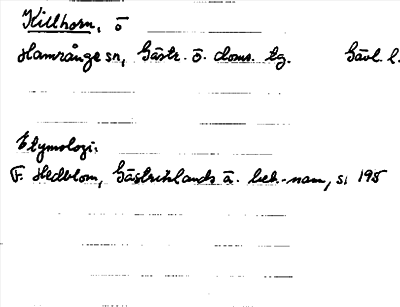 Killhorn, ö
Hamrånge sn, Gästr. ö. doms. tg. Gävl. l.
Etymologi.
F. Hedblom, Gästriklands ä. beb.-nam, s. 195